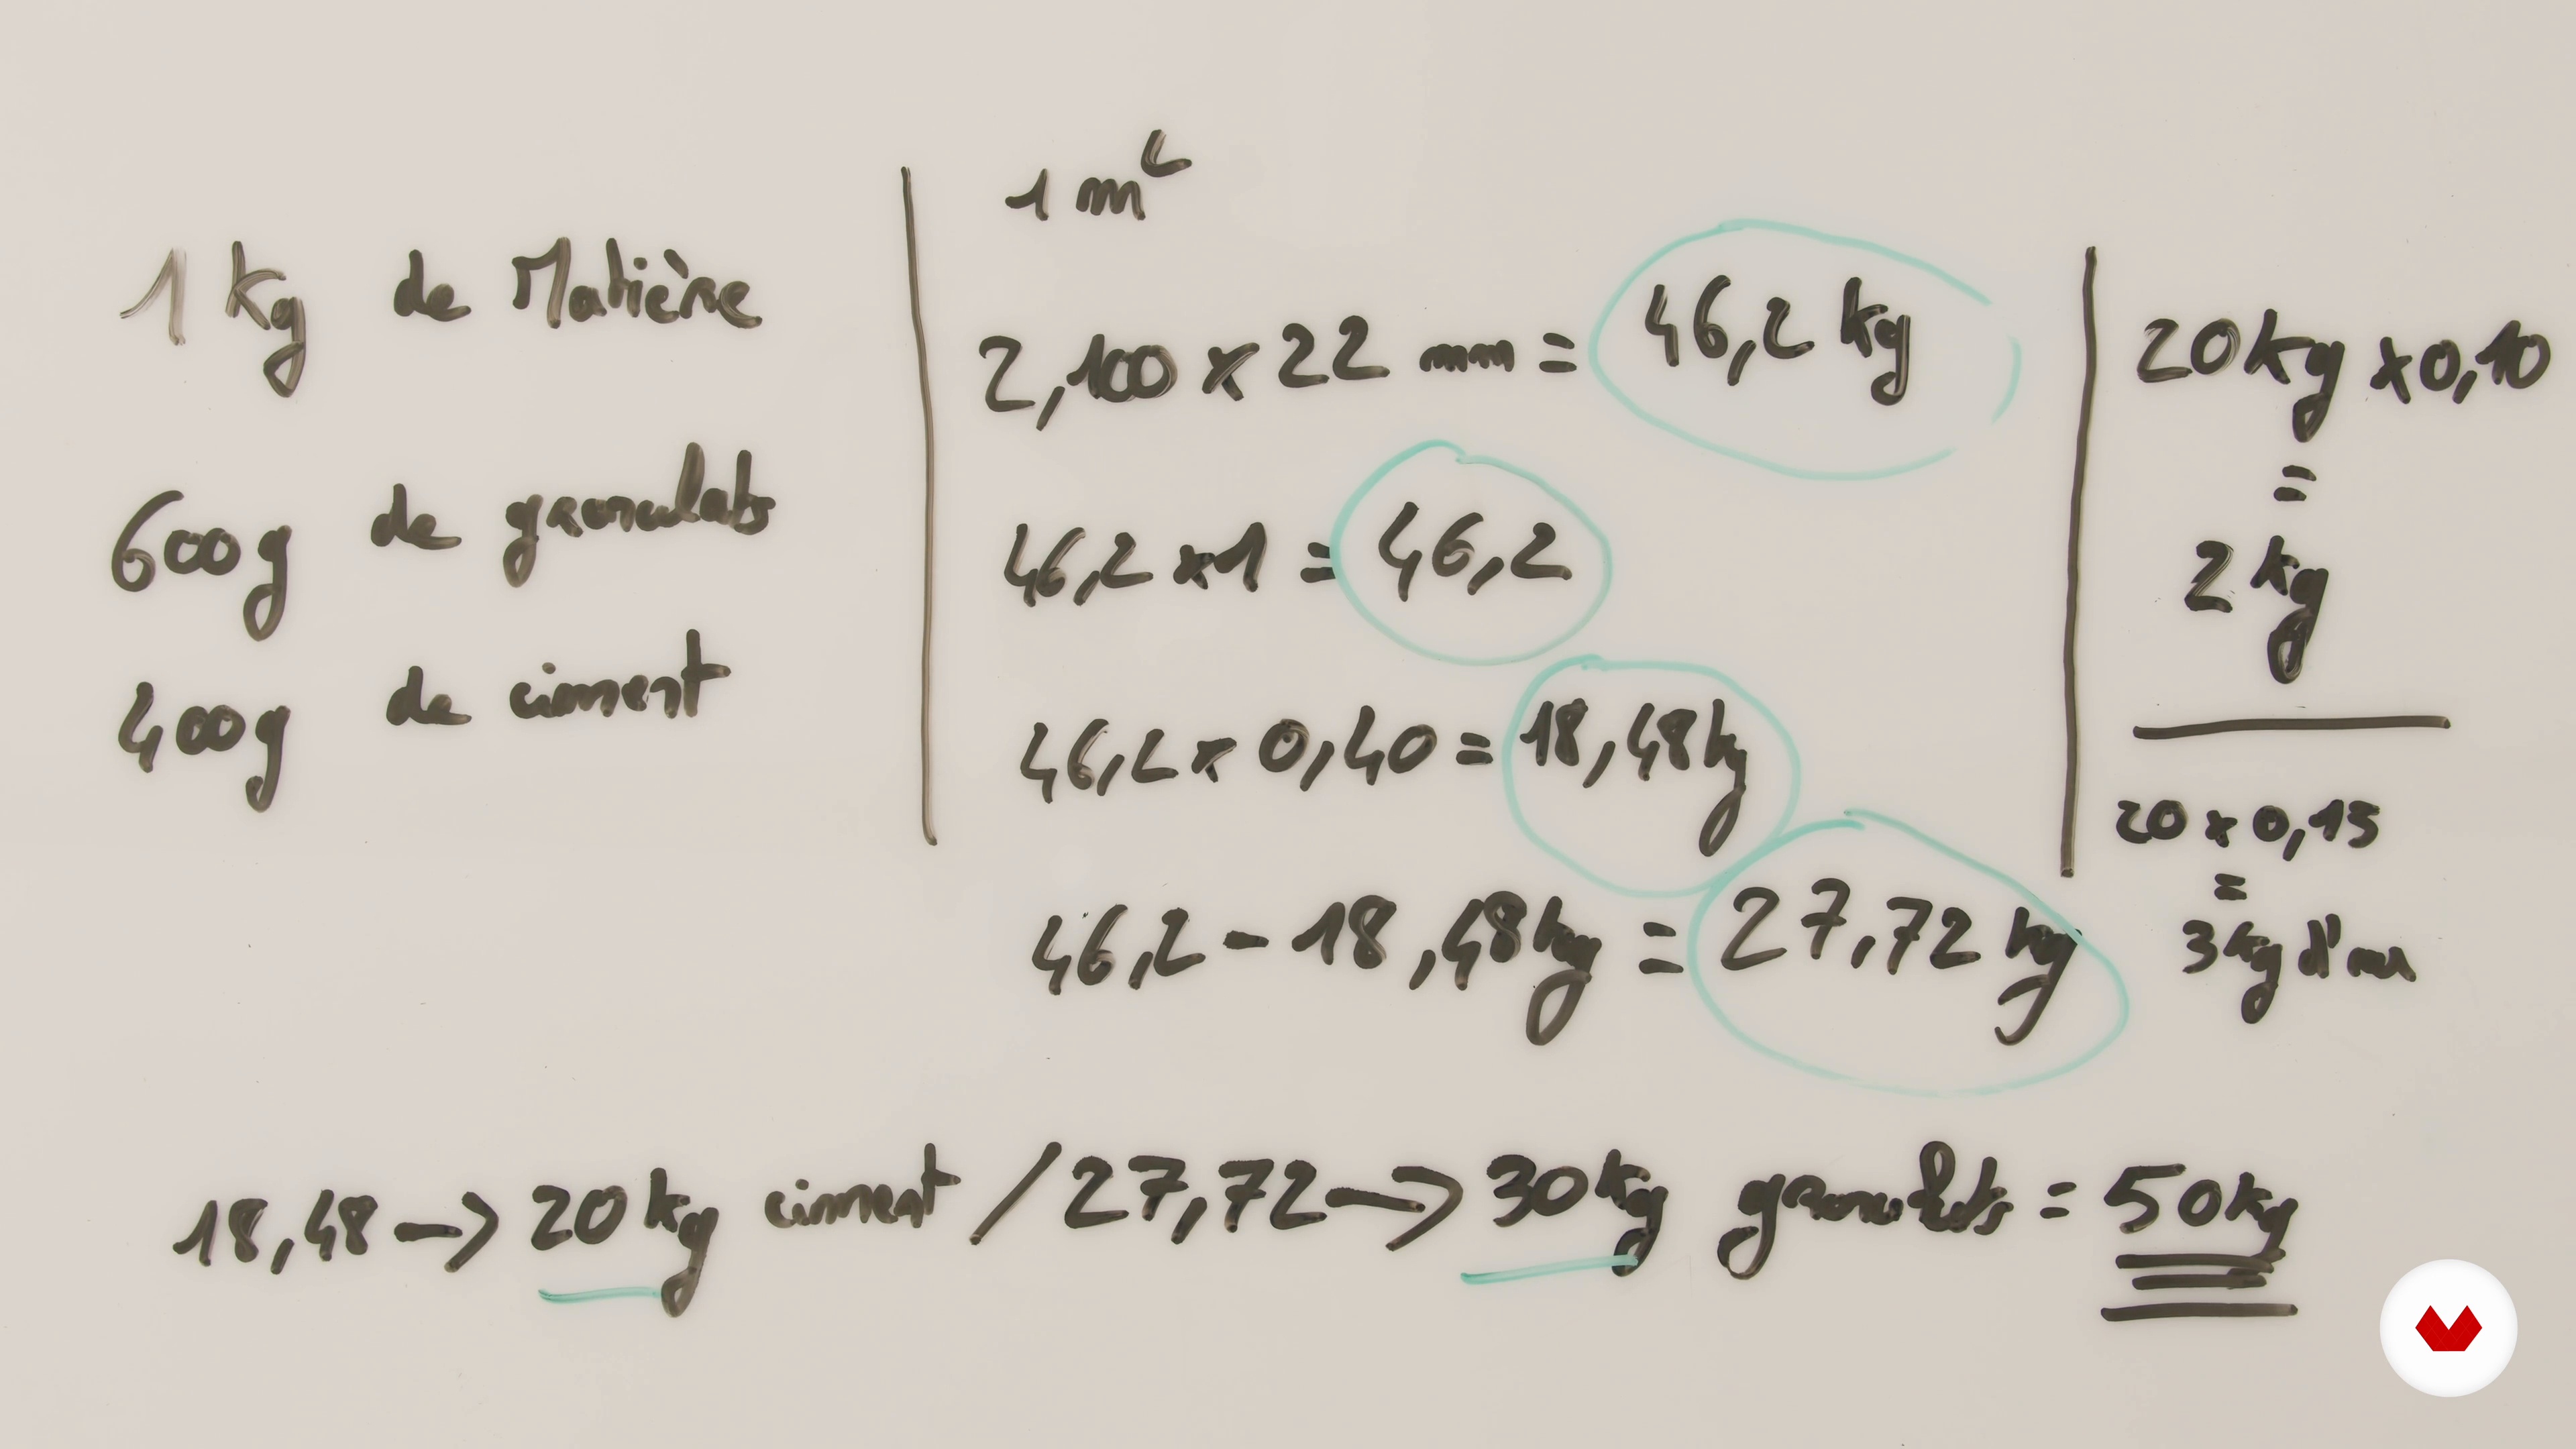 1 kg de Matière
600g de granulats
400g de ciment
1 m²
2,100 x 22 mm = 46,2 kg
46,2 x 1 = 46,2
46,2 x 0,40 = 18,48 kg
46,2 - 18,48 kg = 27,72 kg
20 kg x 0,10
=
2 kg
20 x 0,15
=
3 kg
18,48 → 20 kg ciment / 27,72 → 30 kg granulats = 50 kg